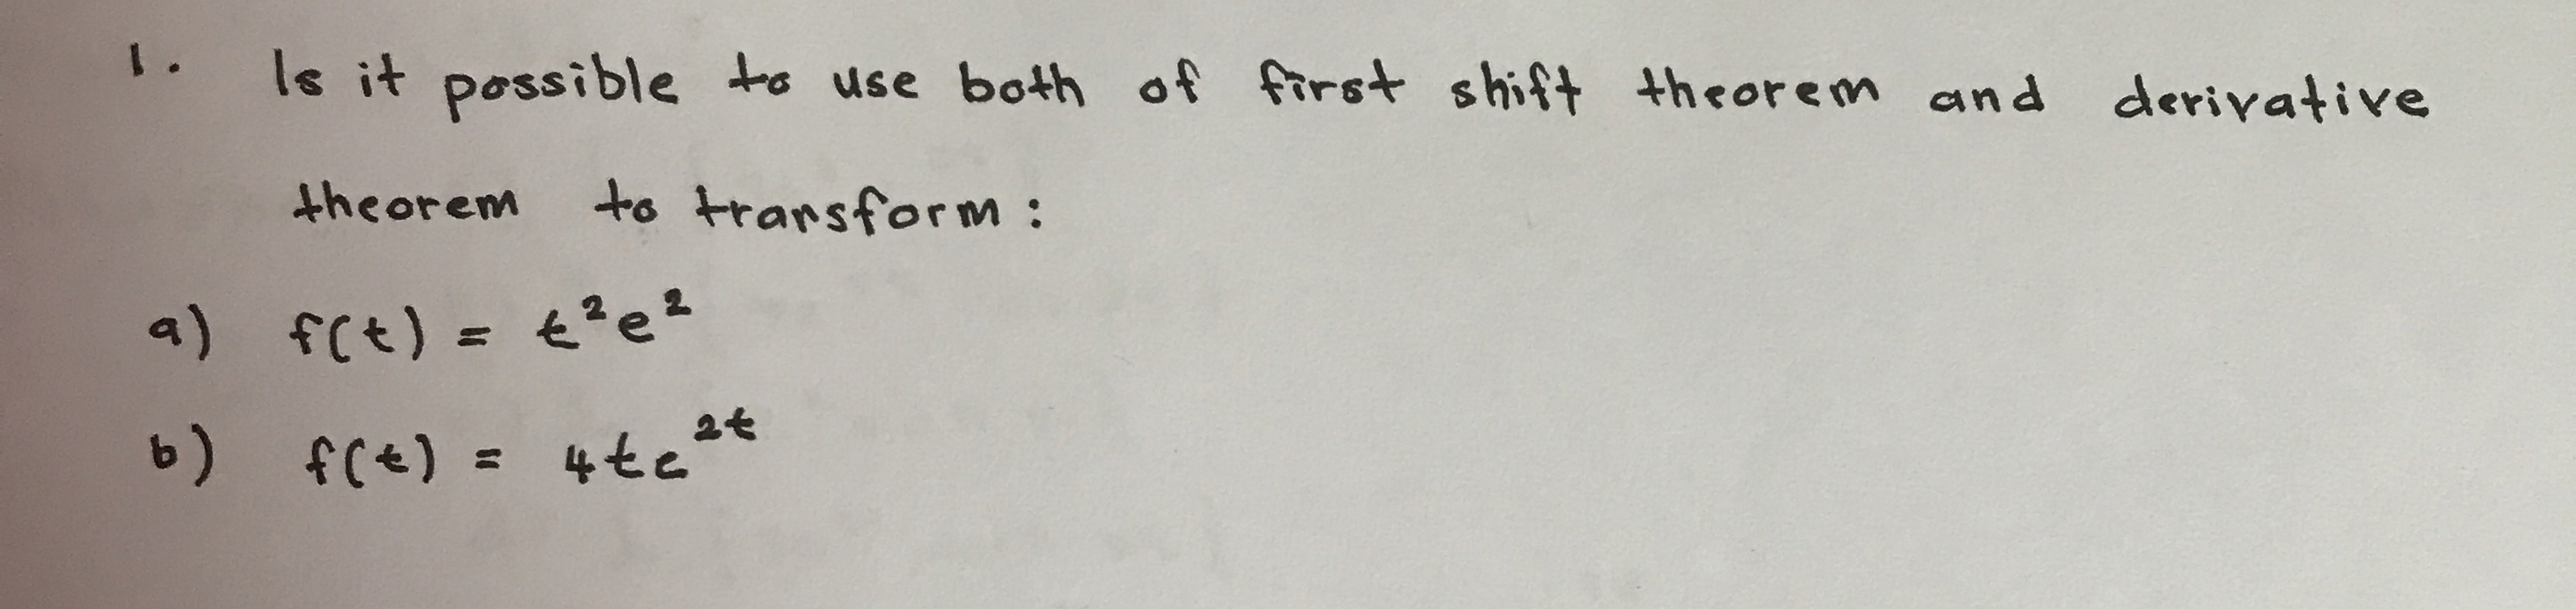 1. Is it possible to use both of first shift theorem and derivative
theorem to transform:
a) f(t) = t²e²
b) f(t) = 4te²ᵗ